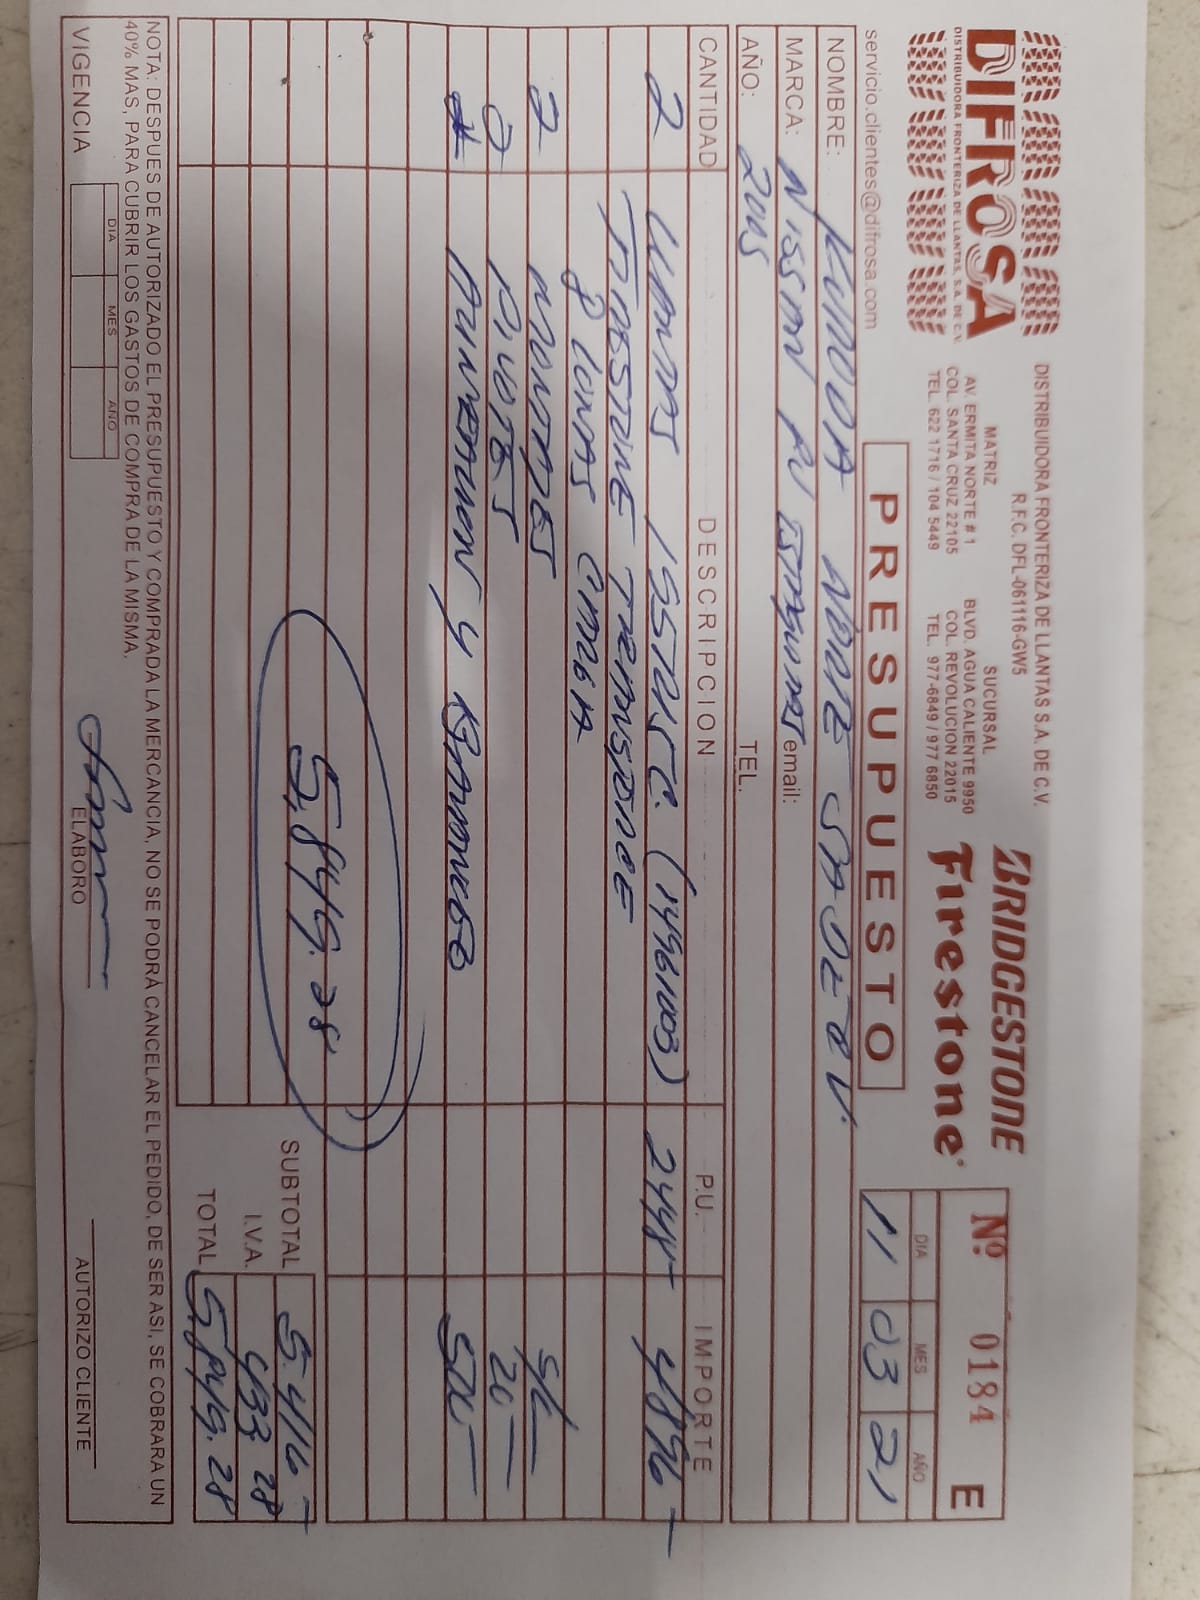 DIFROSA
DISTRIBUIDORA FRONTERIZA DE LLANTAS, S.A. DE C.V.
servicio.clientes@difrosa.com
DISTRIBUIDORA FRONTERIZA DE LLANTAS S.A. DE C.V.
R.F.C. DFL-061116-GW5
MATRIZ
AV. ERMITA NORTE # 1
COL. SANTA CRUZ 22105
TEL. 622 1716 / 104 5449
SUCURSAL
BLVD. AGUA CALIENTE 9950
COL. REVOLUCION 22015
TEL. 977-6849 / 977 6850
BRIDGESTONE
Firestone
PRESUPUESTO
Nº 0184 E
DIA MES AÑO
11 03 21
NOMBRE: NORTE S.A DE C.V.
MARCA: NISSAN email:
AÑO: 2005 TEL.
CANTIDAD DESCRIPCION P.U. IMPORTE
2 LLANTAS 155R15C. (14961003) 2448- 4896-
FIRESTONE TRANSFORCE
8 LONAS CARGA
2 MONTAJES S/C
2 PIVOTES 20-
ALINEACION Y BALANCEO 500-
5,849.28
SUBTOTAL 5.416-
I.V.A. 433.28
TOTAL 5,849.28
NOTA: DESPUES DE AUTORIZADO EL PRESUPUESTO Y COMPRADA LA MERCANCIA, NO SE PODRÁ CANCELAR EL PEDIDO, DE SER ASI, SE COBRARA UN
40% MAS, PARA CUBRIR LOS GASTOS DE COMPRA DE LA MISMA.
VIGENCIA
DIA MES AÑO
ELABORO
AUTORIZO CLIENTE